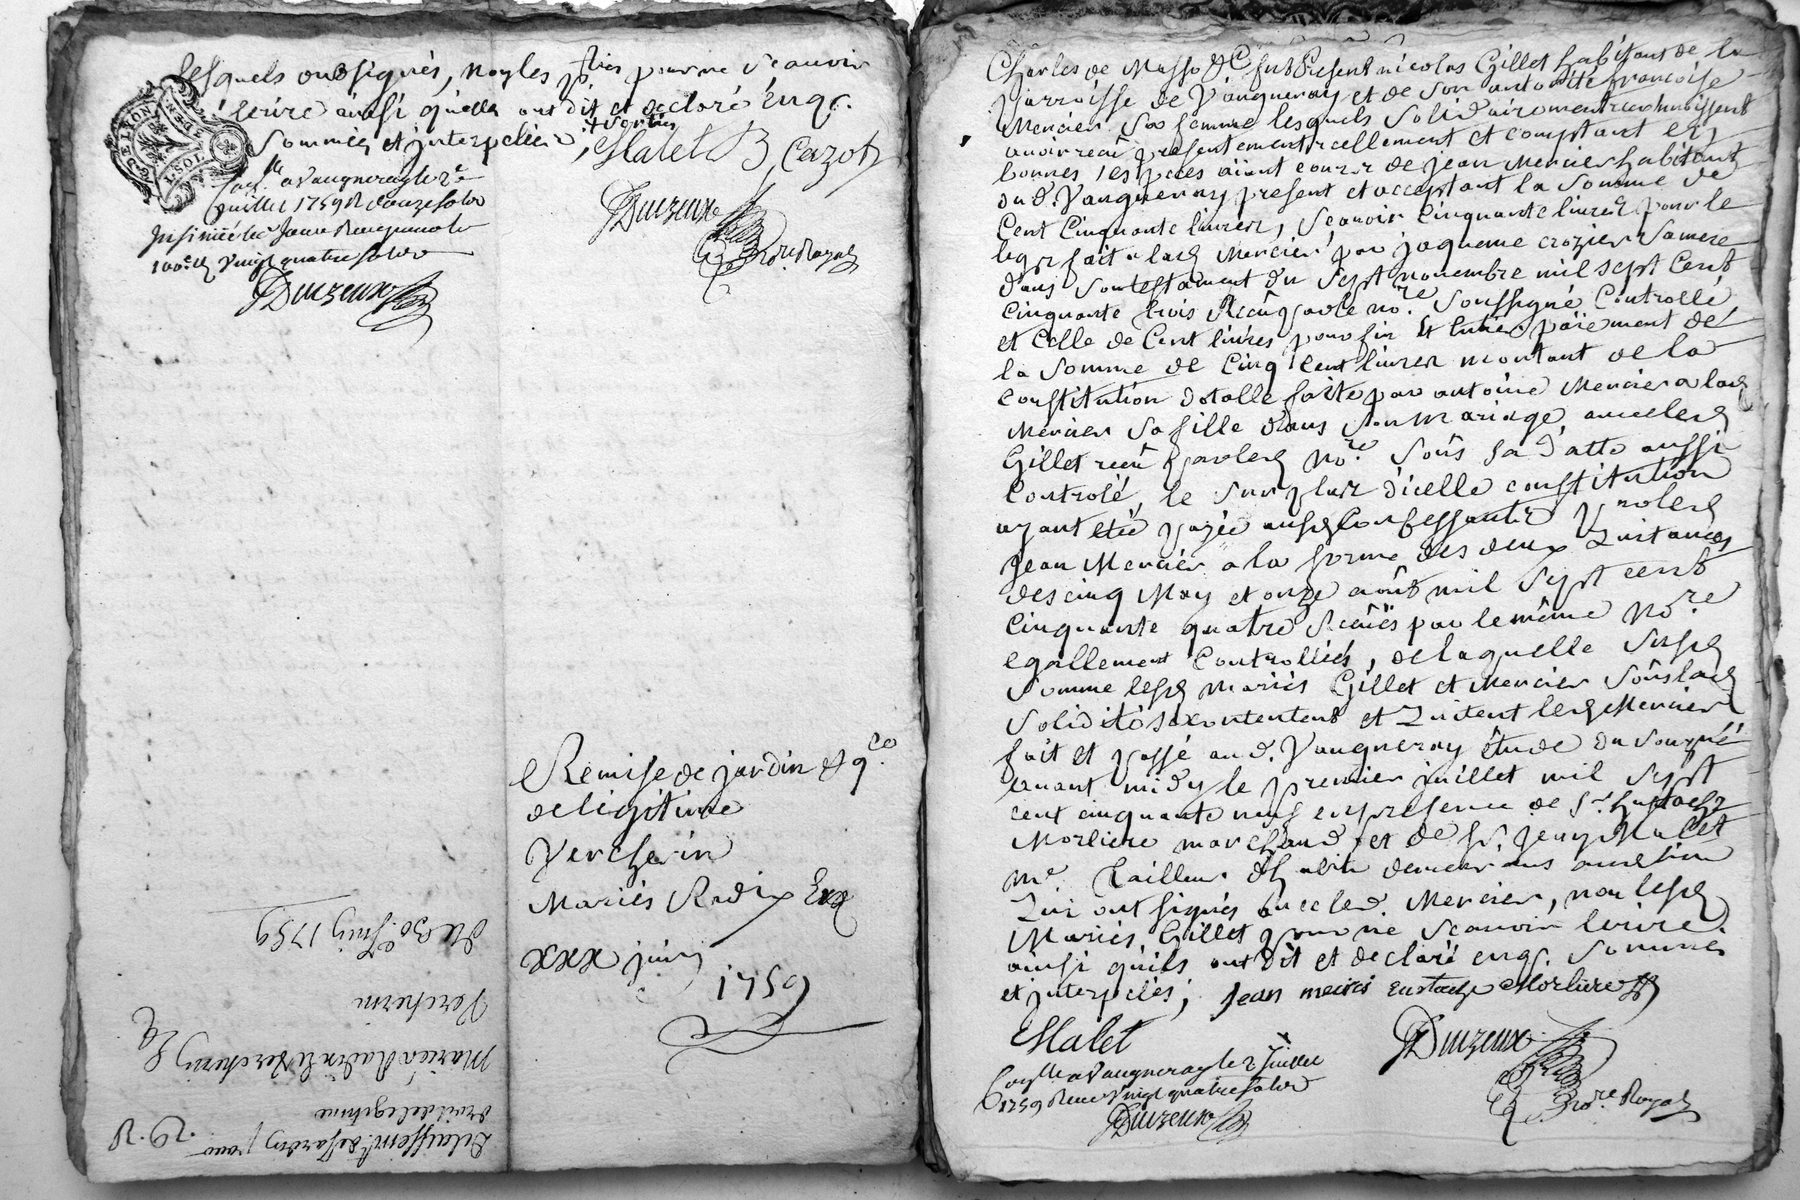 lesquels ont signés, non les parties pour ne sçauoir
écrire ainsi quelles ont dit et declaré enqs.
Sommées et interpelées,
GDE LYON
1.SOL
Malet
Cazot
a Vaugneray le 2e
juillet 1759 R douze sols
Insinué led. Jour Reçu
vingt quatre sols
Duizeux
Duizeux
Nore. Royal
Remise de jardin et qce.
de legitime
Vercherin
Mariés Radix Exx
xxx juin
1759
Du 30e Juin 1759
Vercherin
Mariés Radix & Vercherin
droit de legitime
Delaissemt. de Jardin pour
Charles de Masso &c fut Present nicolas Gillet habitant de la
Parroisse de Vaugneray et de son autorité francoise
Mercier sa femme lesquels solidairement reconnoissent
auoir reçu presentement reellement et comptant en
bonnes especes aiant cours de jean Mercier habitant
dud. Vaugneray present et acceptant la Somme de
Cent Cinquante livres, Sçauoir Cinquante livres pour le
legs fait a lad. Mercier par jaqueme crozier sa mere
dans son testament du sept novembre mil sept Cent
cinquante trois Reçu par le nore. soussigné Controllé
et Celle de Cent livres pour fin et entier païement de
la Somme de Cinq Cent livres montant de la
constitution dotalle faitte par antoine Mercier a lad.
Mercier sa fille dans son mariage avec led.
Gillet reçu par led. Nore. sous sa datte aussi
Controlé, le surplus d'icelle constitution
ayant eté payée ausd. Confessants par led.
jean Mercier a la forme des deux Quitances
des cinq May et onze août mil sept cent
cinquante quatre Reçües par le même Nore
egallement Controllées, de laquelle susd.
Somme lesd. mariés Gillet et Mercier sous lad.
solidité se contentent et Quitent led. Mercier
fait et passé aud. Vaugneray étude du sousné
auant midy le premier juillet mil sept
cent cinquante neuf en presence de sr. Eustache
Morliere marchand et de sr. jean Malet
me. Tailleur d'habits demeurans aud. lieu
Qui ont signés avec led. Mercier, non lesd.
Mariés Gillet pour ne sçauoir écrire
ainsi qu'ils ont dit et declaré enqs. Sommés
et interpelés; jean mercier Eustache Morliere
Malet
Duizeux
a Vaugneray le 2 Juillet
1759 Reçu vingt quatre sols
Duizeux
Nore Royal